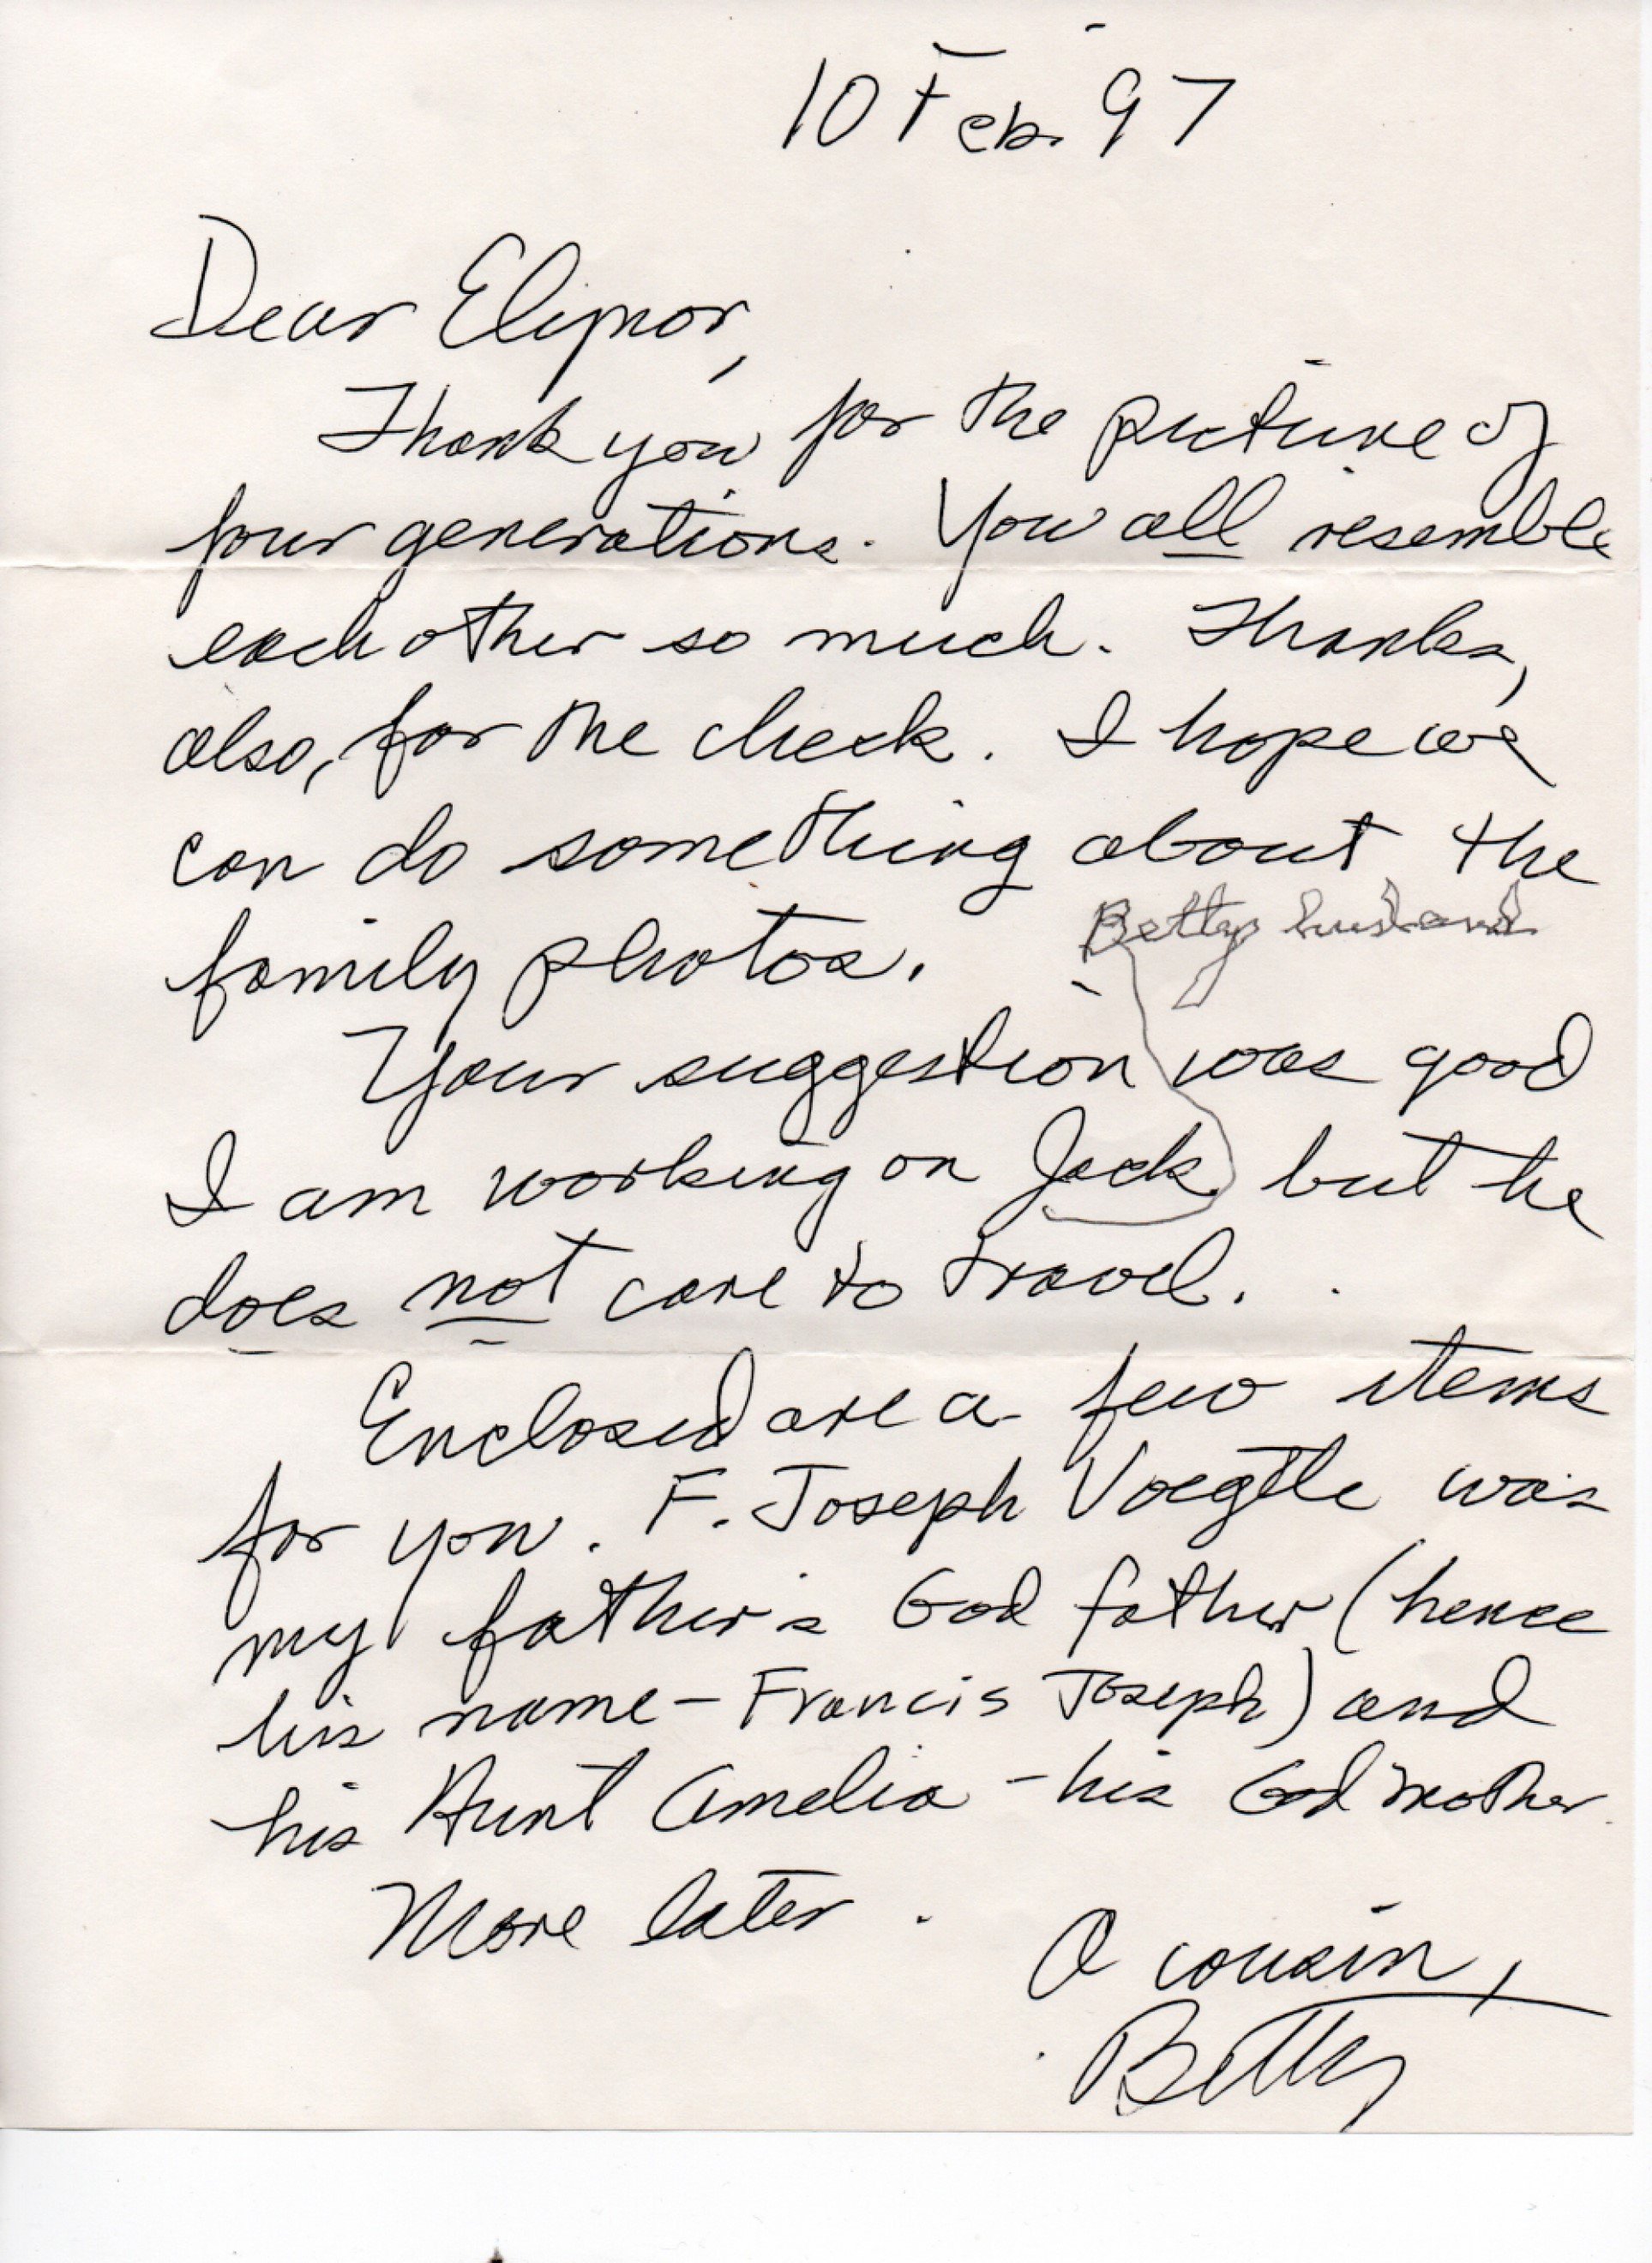 10 Feb. 97
Dear Elinor,
Thank you for the picture of
four generations. You all resemble
each other so much. Thanks,
also, for the check. I hope we
can do something about the
family photos.
Betty husband
Your suggestion was good
I am working on Jack but he
does not care to travel.
Enclosed are a few items
for you. F. Joseph Voegtle was
my father's God father (hence
his name - Francis Joseph) and
his Aunt Amelia - his God mother.
More later.
A cousin,
Betty